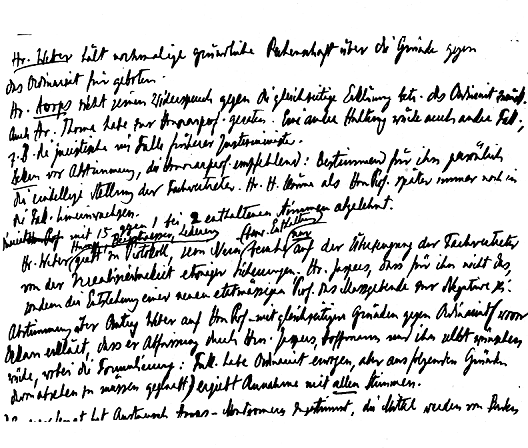 Hr. Weber hält nochmalige gründliche Rechenschaft über die Gründe gegen
das Ordinariat für geboten.
Hr. Hoops zieht seinen Widerspruch gegen die gleichzeitige Erklärung betr. das Ordinariat zurück.
Auch Hr. Thoma habe zur Honorarprof. geraten. Eine andere Haltung würde auch andre Fak.,
z.B. die juristische im Falle früherer Justizminister.
Dekan vor Abstimmung, die Honorarprof. empfehlend: Bestimmend für ihn persönlich
die einhellige Stellung der Fachvertreter. Hr. H. könne als Hon.Prof. später immer noch in
die Fak. hineinwachsen.
mit 15 gegen 1 bei 2 enthaltenen Stimmen abgelehnt.
Hr. Weber giebt zu Protokoll, sein Nein beruhe nur auf der Überzeugung der Fachvertreter
von der etwaiger Sicherungen. Hr. Jaspers, dass für ihn nicht das,
sondern die Entstehung einer neuen etatmässigen Prof. das Massgebende zur Negative sei.
Abstimmung über Antrag Weber auf Hon.Prof. mit gleichzeitigen Gründen gegen Ordinariat (wovon
Dekan erklärt, dass er Abfassung durch Hrn. Jaspers, Hoffmann und ihn selbst wünschen
würde, wobei die Formulierung: Fak. habe Ordinariat erwogen, aber aus folgenden Gründen
davon absehen zu müssen geglaubt) ergiebt Annahme mit allen Stimmen.
hat Austausch zugestimmt, die Mittel werden von